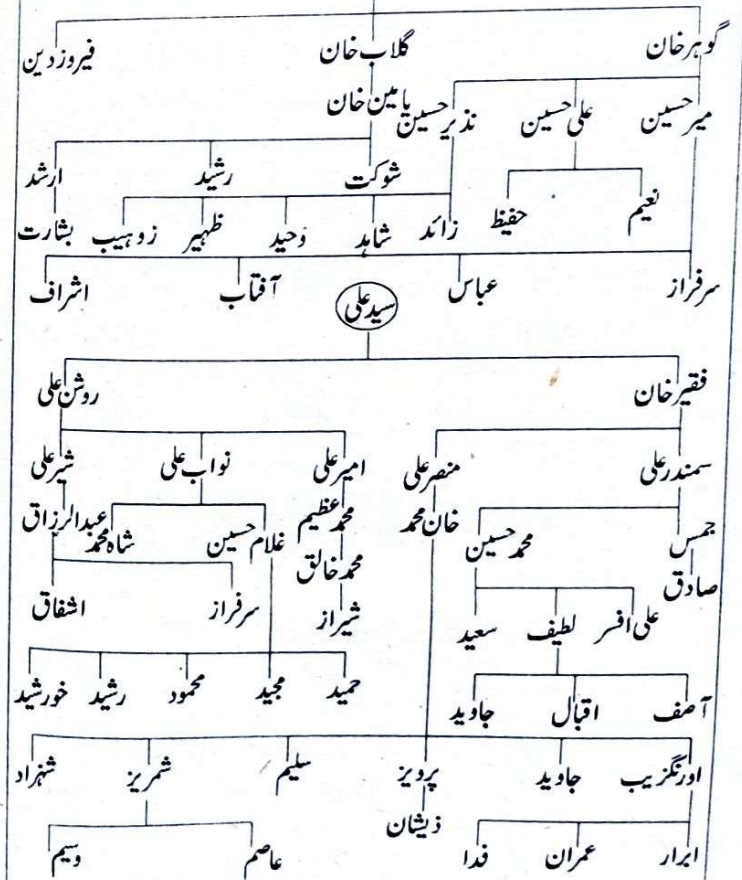 گوہر خان گلاب خان فیروز دین
میر حسین علی حسین نذیر حسین یامین خان
شوکت رشید ارشد
نعیم حفیظ زائد شاہد وحید ظہیر زوہیب بشارت
سرفراز عباس آفتاب اشراف
سید علی
فقیر خان روشن علی
سمندر علی منصر علی امیر علی نواب علی شیر علی
جمس محمد حسین خان محمد محمد عظیم غلام حسین شاہ محمد عبدالرزاق
صادق محمد خالق
علی افسر لطیف سعید شیراز سرفراز اشفاق
آصف اقبال جاوید حمید مجید محمود رشید خورشید
اورنگزیب جاوید پرویز سلیم شمریز شہزاد
ذیشان
ابرار عمران فدا عاصم وسیم